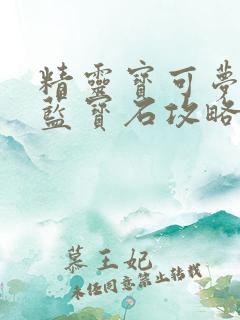 精靈寶可夢
藍寶石攻略
慕王妃
未经同意禁止转载